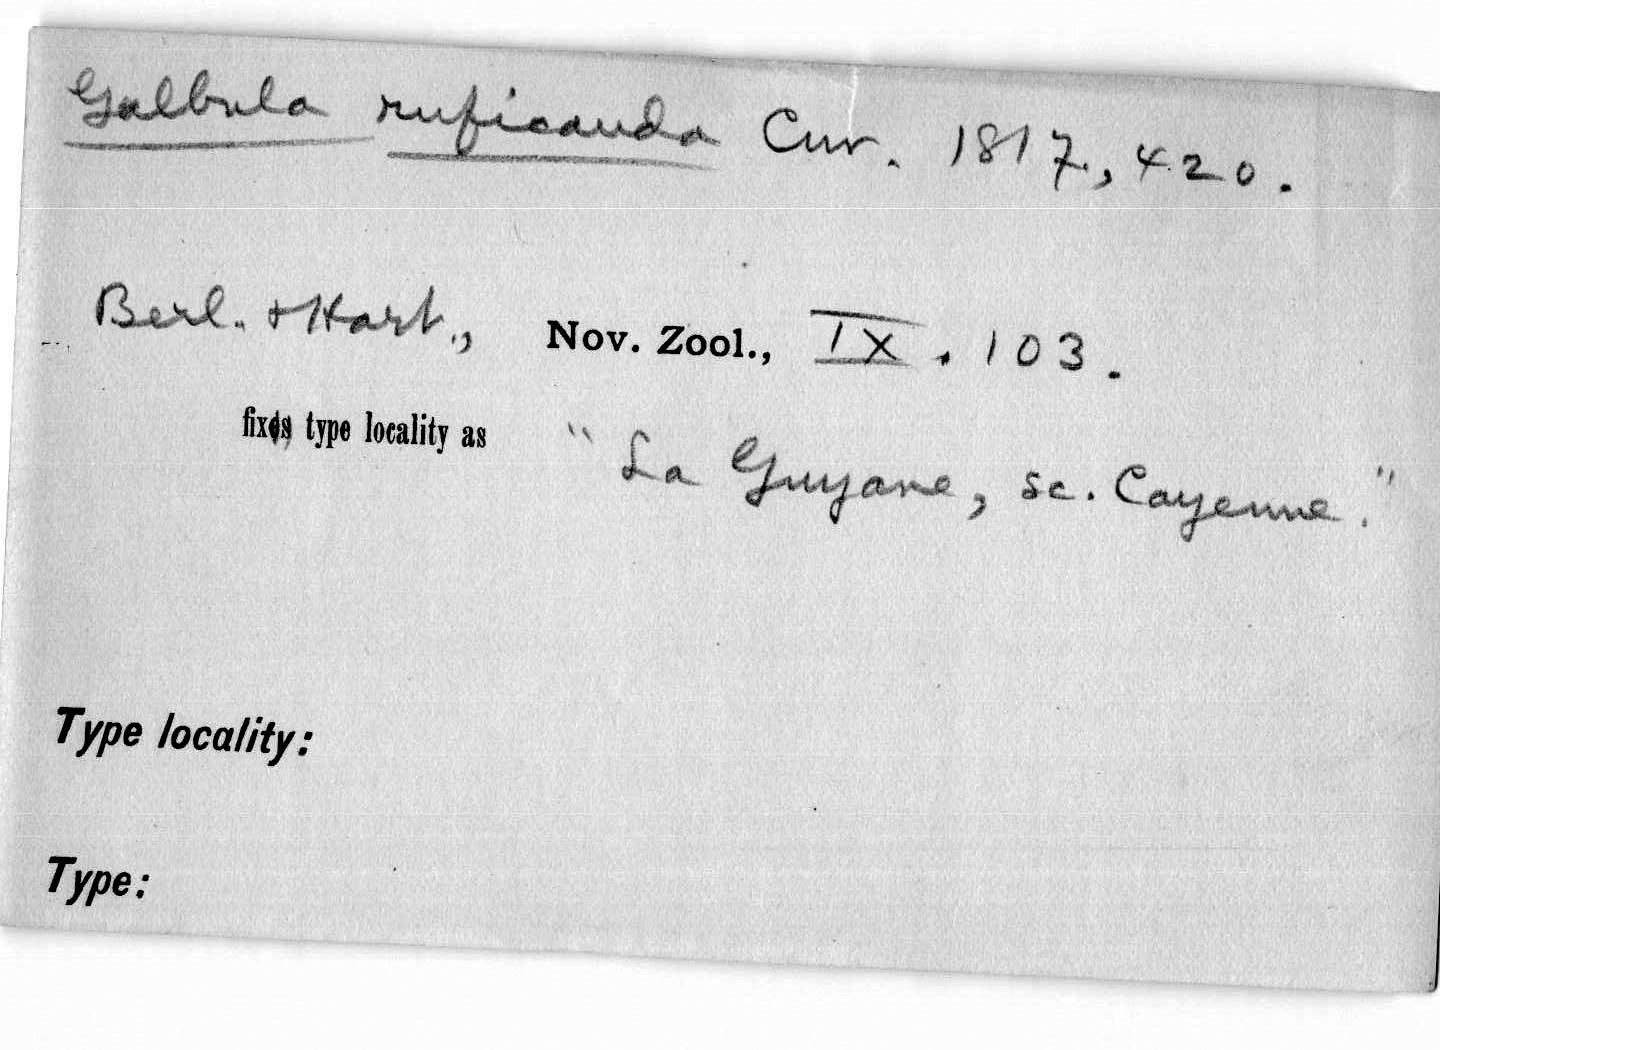 Galbula ruficauda Cuv. 1817, 420.
Berl. + Hart., Nov. Zool., IX. 103.
fixes type locality as "La Guyane, sc. Cayenne."
Type locality:
Type: